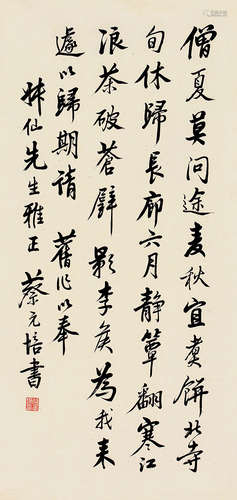 僧夏莫问途麦秋宜煮饼北寺
旬休归长廊六月静簟翻寒江
浪茶破苍璧影李侯为我来
遽以归期请 旧作以奉
姝仙先生雅正 蔡元培书